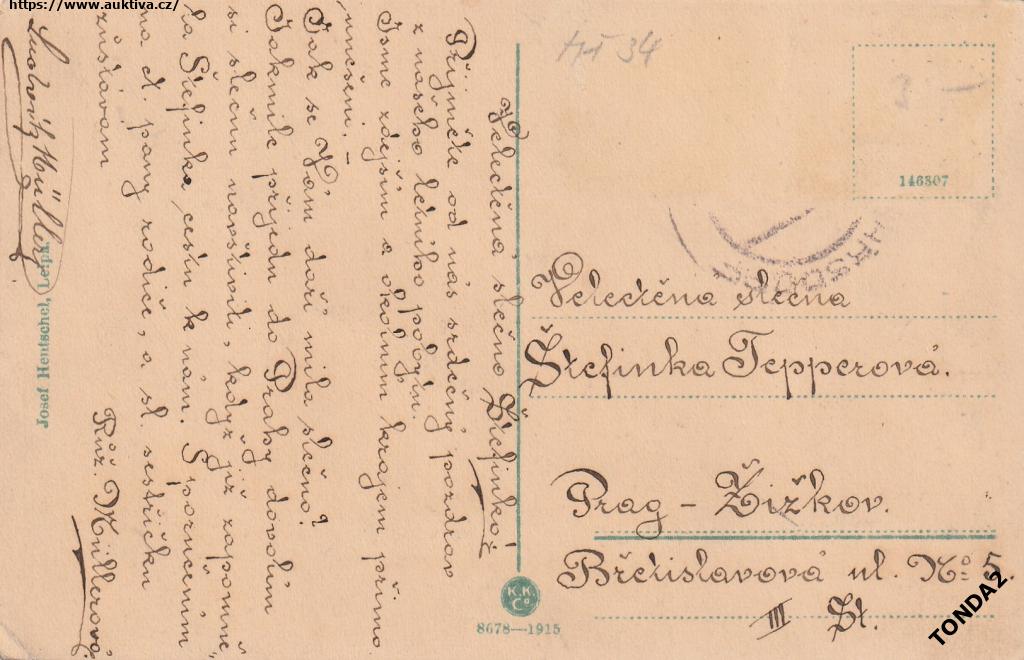 https://www.auktiva.cz/
Velectěná slečno Štefinko!
Přijměte od nás srdečný pozdrav
z našeho letního pobytu.
Jsme zdejším a okolním krajem přímo
uneseni. –
Jak se Vám daří milá slečno?
Jakmile přijedu do Prahy dovolím
si slečnu navštíviti, když již zapomně-
la Štefinka cestu k nám. S poručením
na ct. pany rodiče, a sl. sestřičku
zůstávám
Růž. Müllerová
Müller
Josef Hentschel, Leipa.
HT 34
146807
Velectěná slečna
Štefinka Tepperová.
Prag – Žižkov.
Břetislavová ul. No 5.
III St.
K.K.
Co
8678—1915
TONDA2